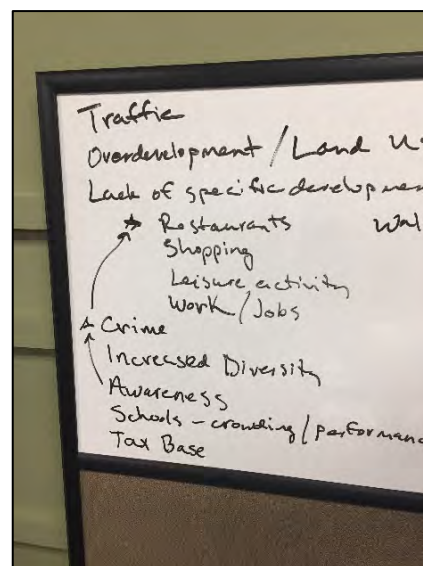 Traffic
Overdevelopment / Land U
Lack of specific developmen
Restaurants Wal
Shopping
Leisure activity
Work / Jobs
Crime
Increased Diversity
Awareness
Schools - crowding / performanc
Tax Base